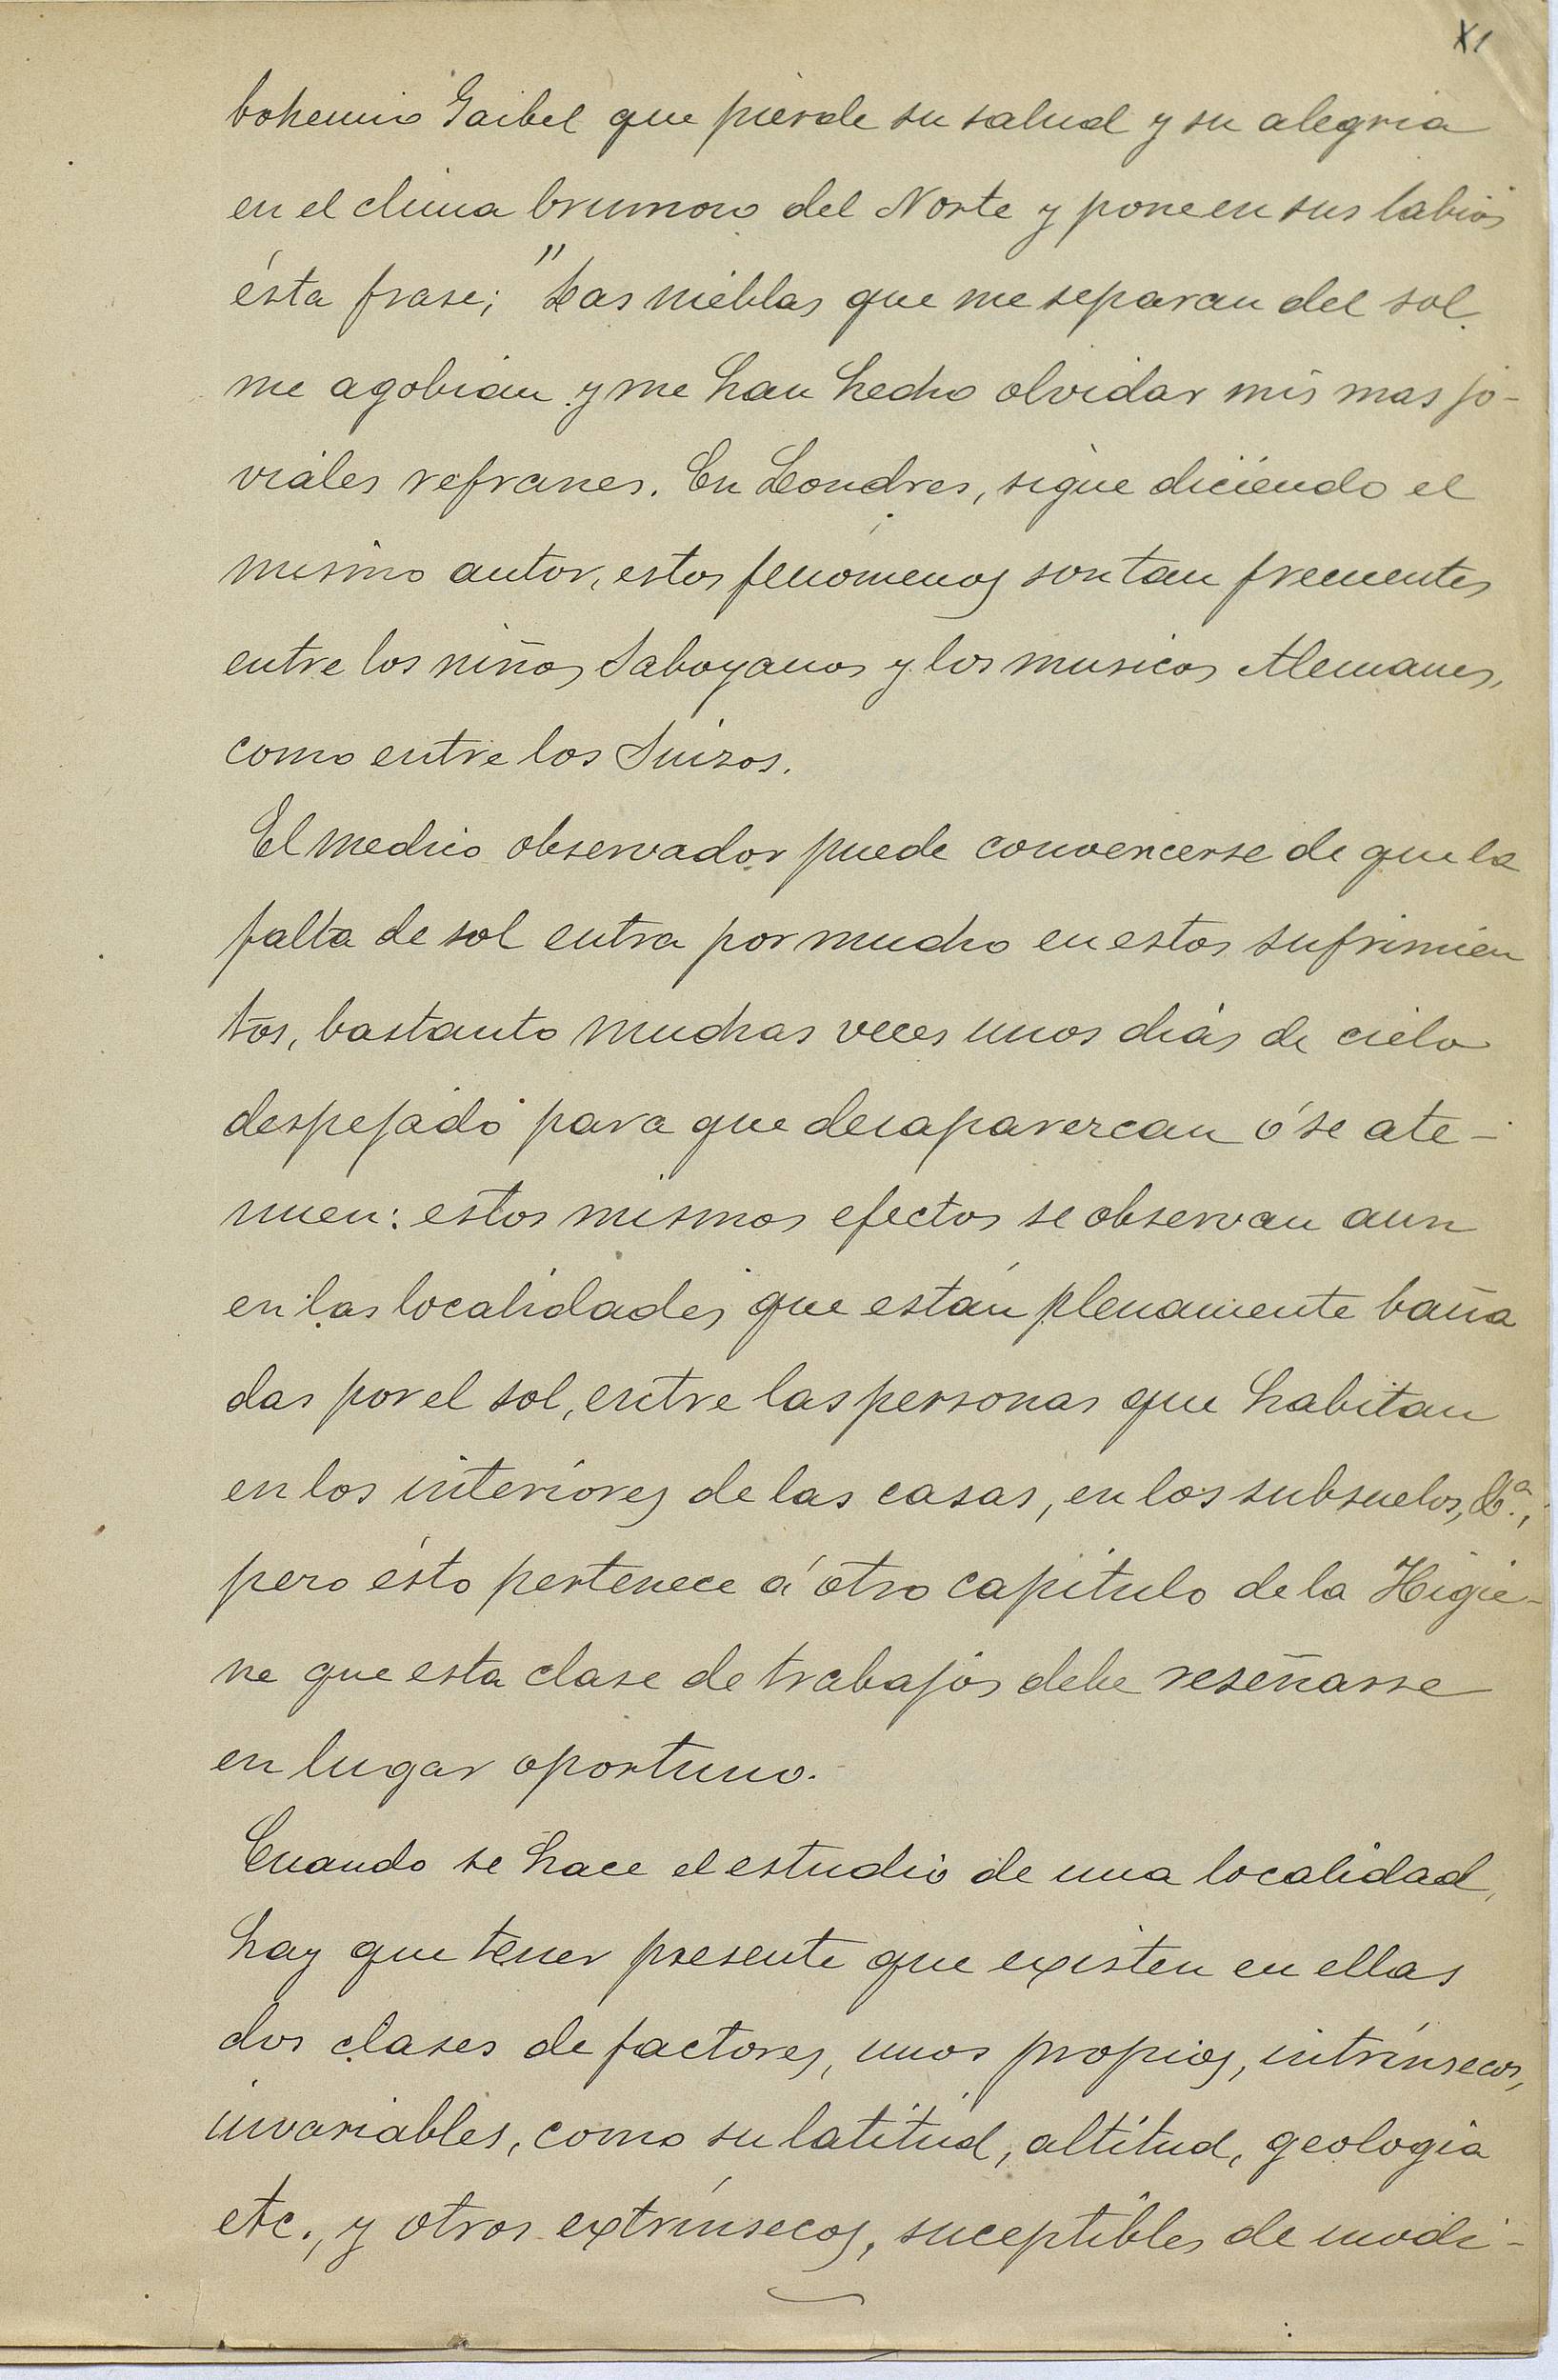 XI
bohemio Gaibel que pierde su salud y su alegria
en el clima brumoso del Norte y pone en sus labios
ésta frase; "Las nieblas que me separan del sol
me agobian y me han hecho olvidar mis mas jo-
viales refranes. En Londres, sigue diciendo el
mismo autor, estos fenómenos son tan frecuentes
entre los niños Saboyanos y los musicos Alemanes,
como entre los Suizos.
El medico observador puede convencerse de que la
falta de sol entra por mucho en estos sufrimien
tos, bastanto muchas veces unos dias de cielo
despejado para que desaparezcan ó se ate-
nuen: estos mismos efectos se observan aun
en las localidades que están plenamente baña
das por el sol, entre las personas que habitan
en los interiores de las casas, en los subsuelos, &.ª,
pero ésto pertenece á otro capitulo de la Higie-
ne que esta clase de trabajos debe reseñarse
en lugar oportuno.
Cuando se hace el estudio de una localidad,
hay que tener presente que existen en ellas
dos clases de factores, unos propios, intrínsecos,
invariables, como su latitud, altitud, geologia
etc., y otros extrínsecos, suceptibles de modi-